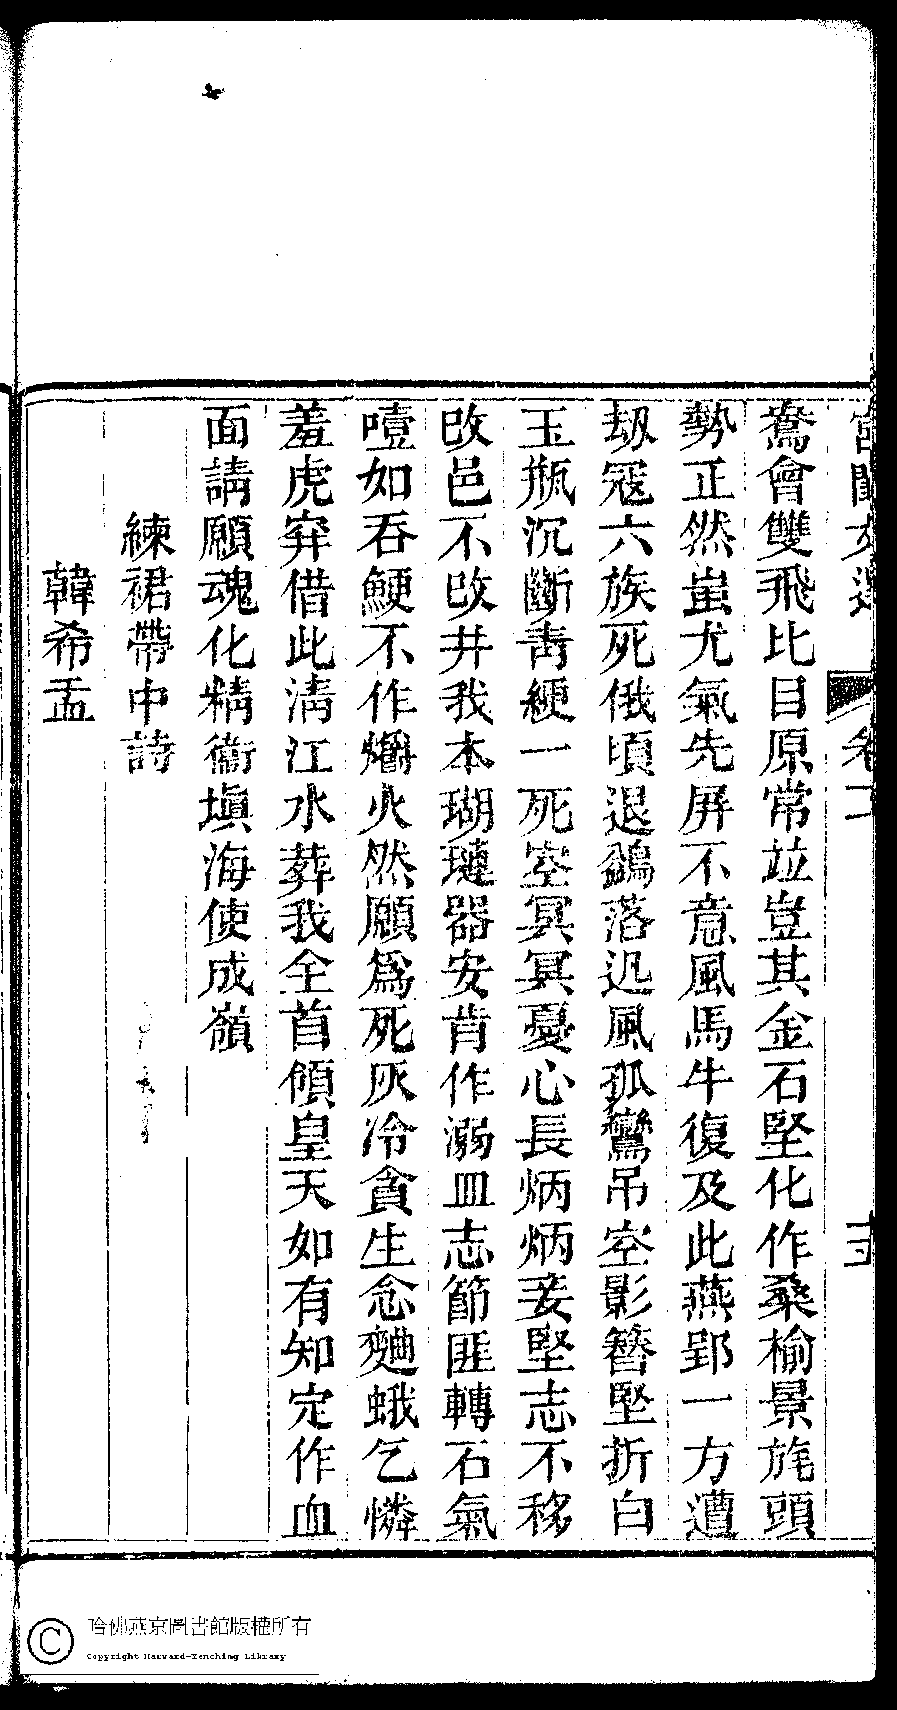 鴦會雙飛比目原常竝豈其金石堅化作桑榆景旄頭
勢正然蚩尤氣先屏不意風馬牛復及此燕郢一方遭
劫冦六族死俄頃退鷁落迅風孤鸞吊空影簪堅折白
玉瓶沉斷靑綆一死空冥冥憂心長炳炳妾堅志不移
改邑不改井我本瑚璉器安肯作溺皿志節匪轉石氣
噎如吞鯁不作爝火然願爲死灰冷貪生念麯蛾乞憐
羞虎穽借此淸江水葬我全首傾皇天如有知定作血
面請願魂化精衞塡海使成嶺
練裙帶中詩
韓希孟
哈佛燕京圖書館版權所有
Copyright Harvard-Yenching Library